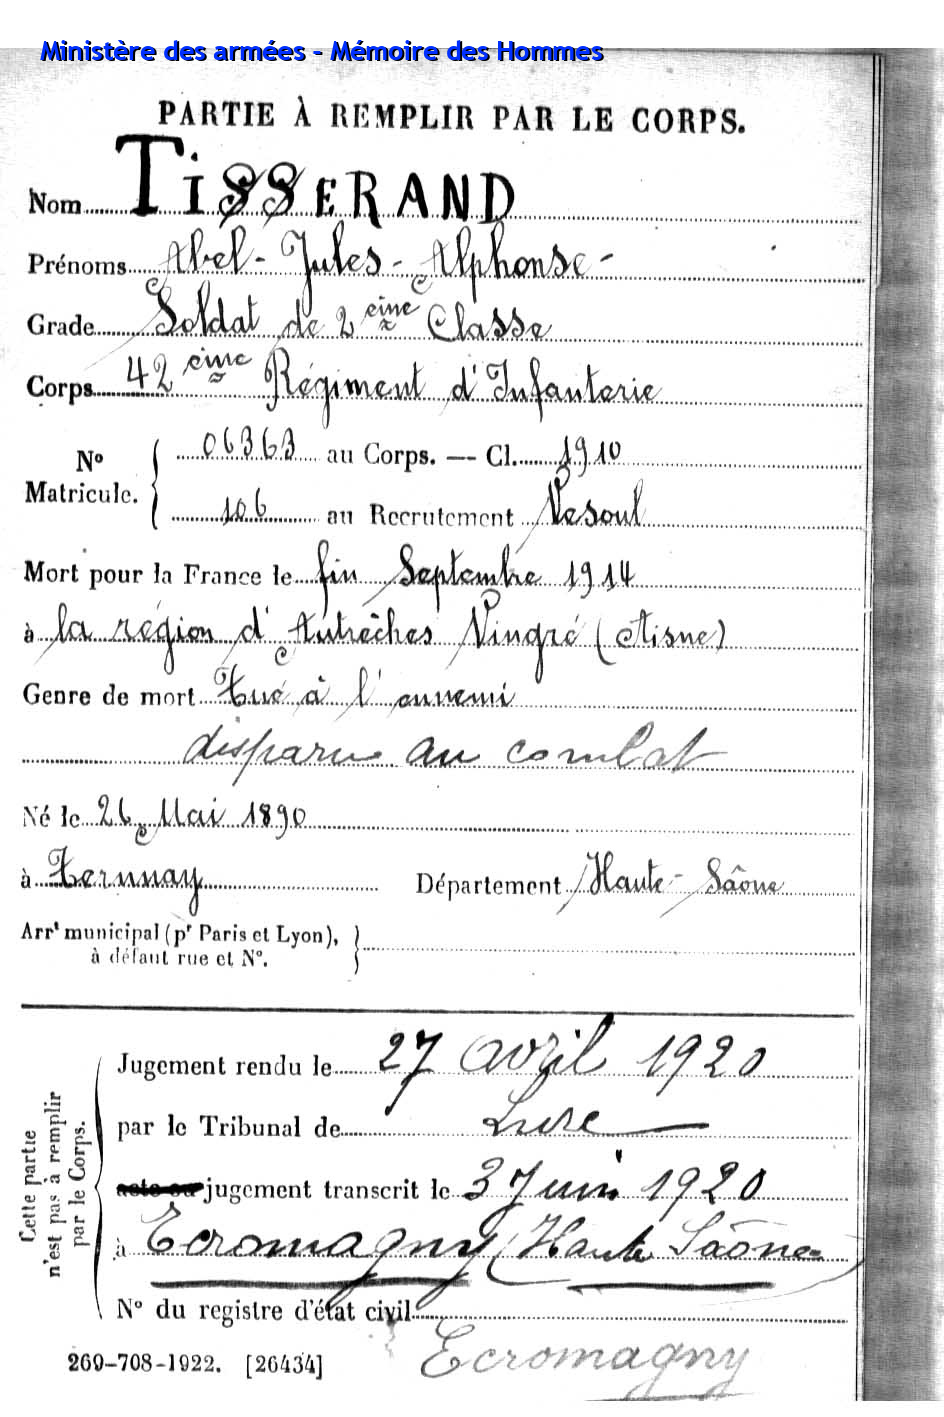 Ministère des armées - Mémoire des Hommes
PARTIE À REMPLIR PAR LE CORPS.
Nom TISSERAND
Prénoms Abel - Jules - Alphonse -
Grade Soldat de 2 ème Classe
Corps 42 ème Régiment d'Infanterie
No Matricule. 06363 au Corps. — Cl. 1910
106 au Recrutement Vesoul
Mort pour la France le fin Septembre 1914
à la région d'Autrêches Vingré (Aisne)
Genre de mort Tué à l'ennemi
disparu au combat
Né le 26 Mai 1890
à Ternuay Département Haute-Saône
Arrt municipal (pr Paris et Lyon),
à défaut rue et No.
Cette partie
n'est pas à remplir
par le Corps.
Jugement rendu le 27 avril 1920
par le Tribunal de Lure
acte ou jugement transcrit le 3 Juin 1920
à Ecromagny (Haute Saône)
No du registre d'état civil
Ecromagny
269-708-1922. [26434]